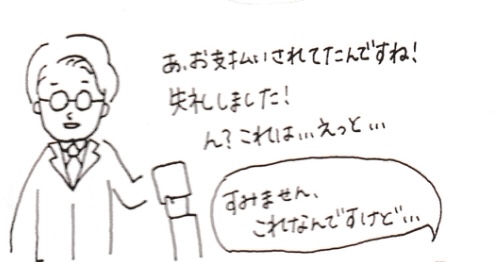 あ、お支払いされてたんですね!
失礼しました!
ん?これは…えっと…
すみません、
これなんですけど…